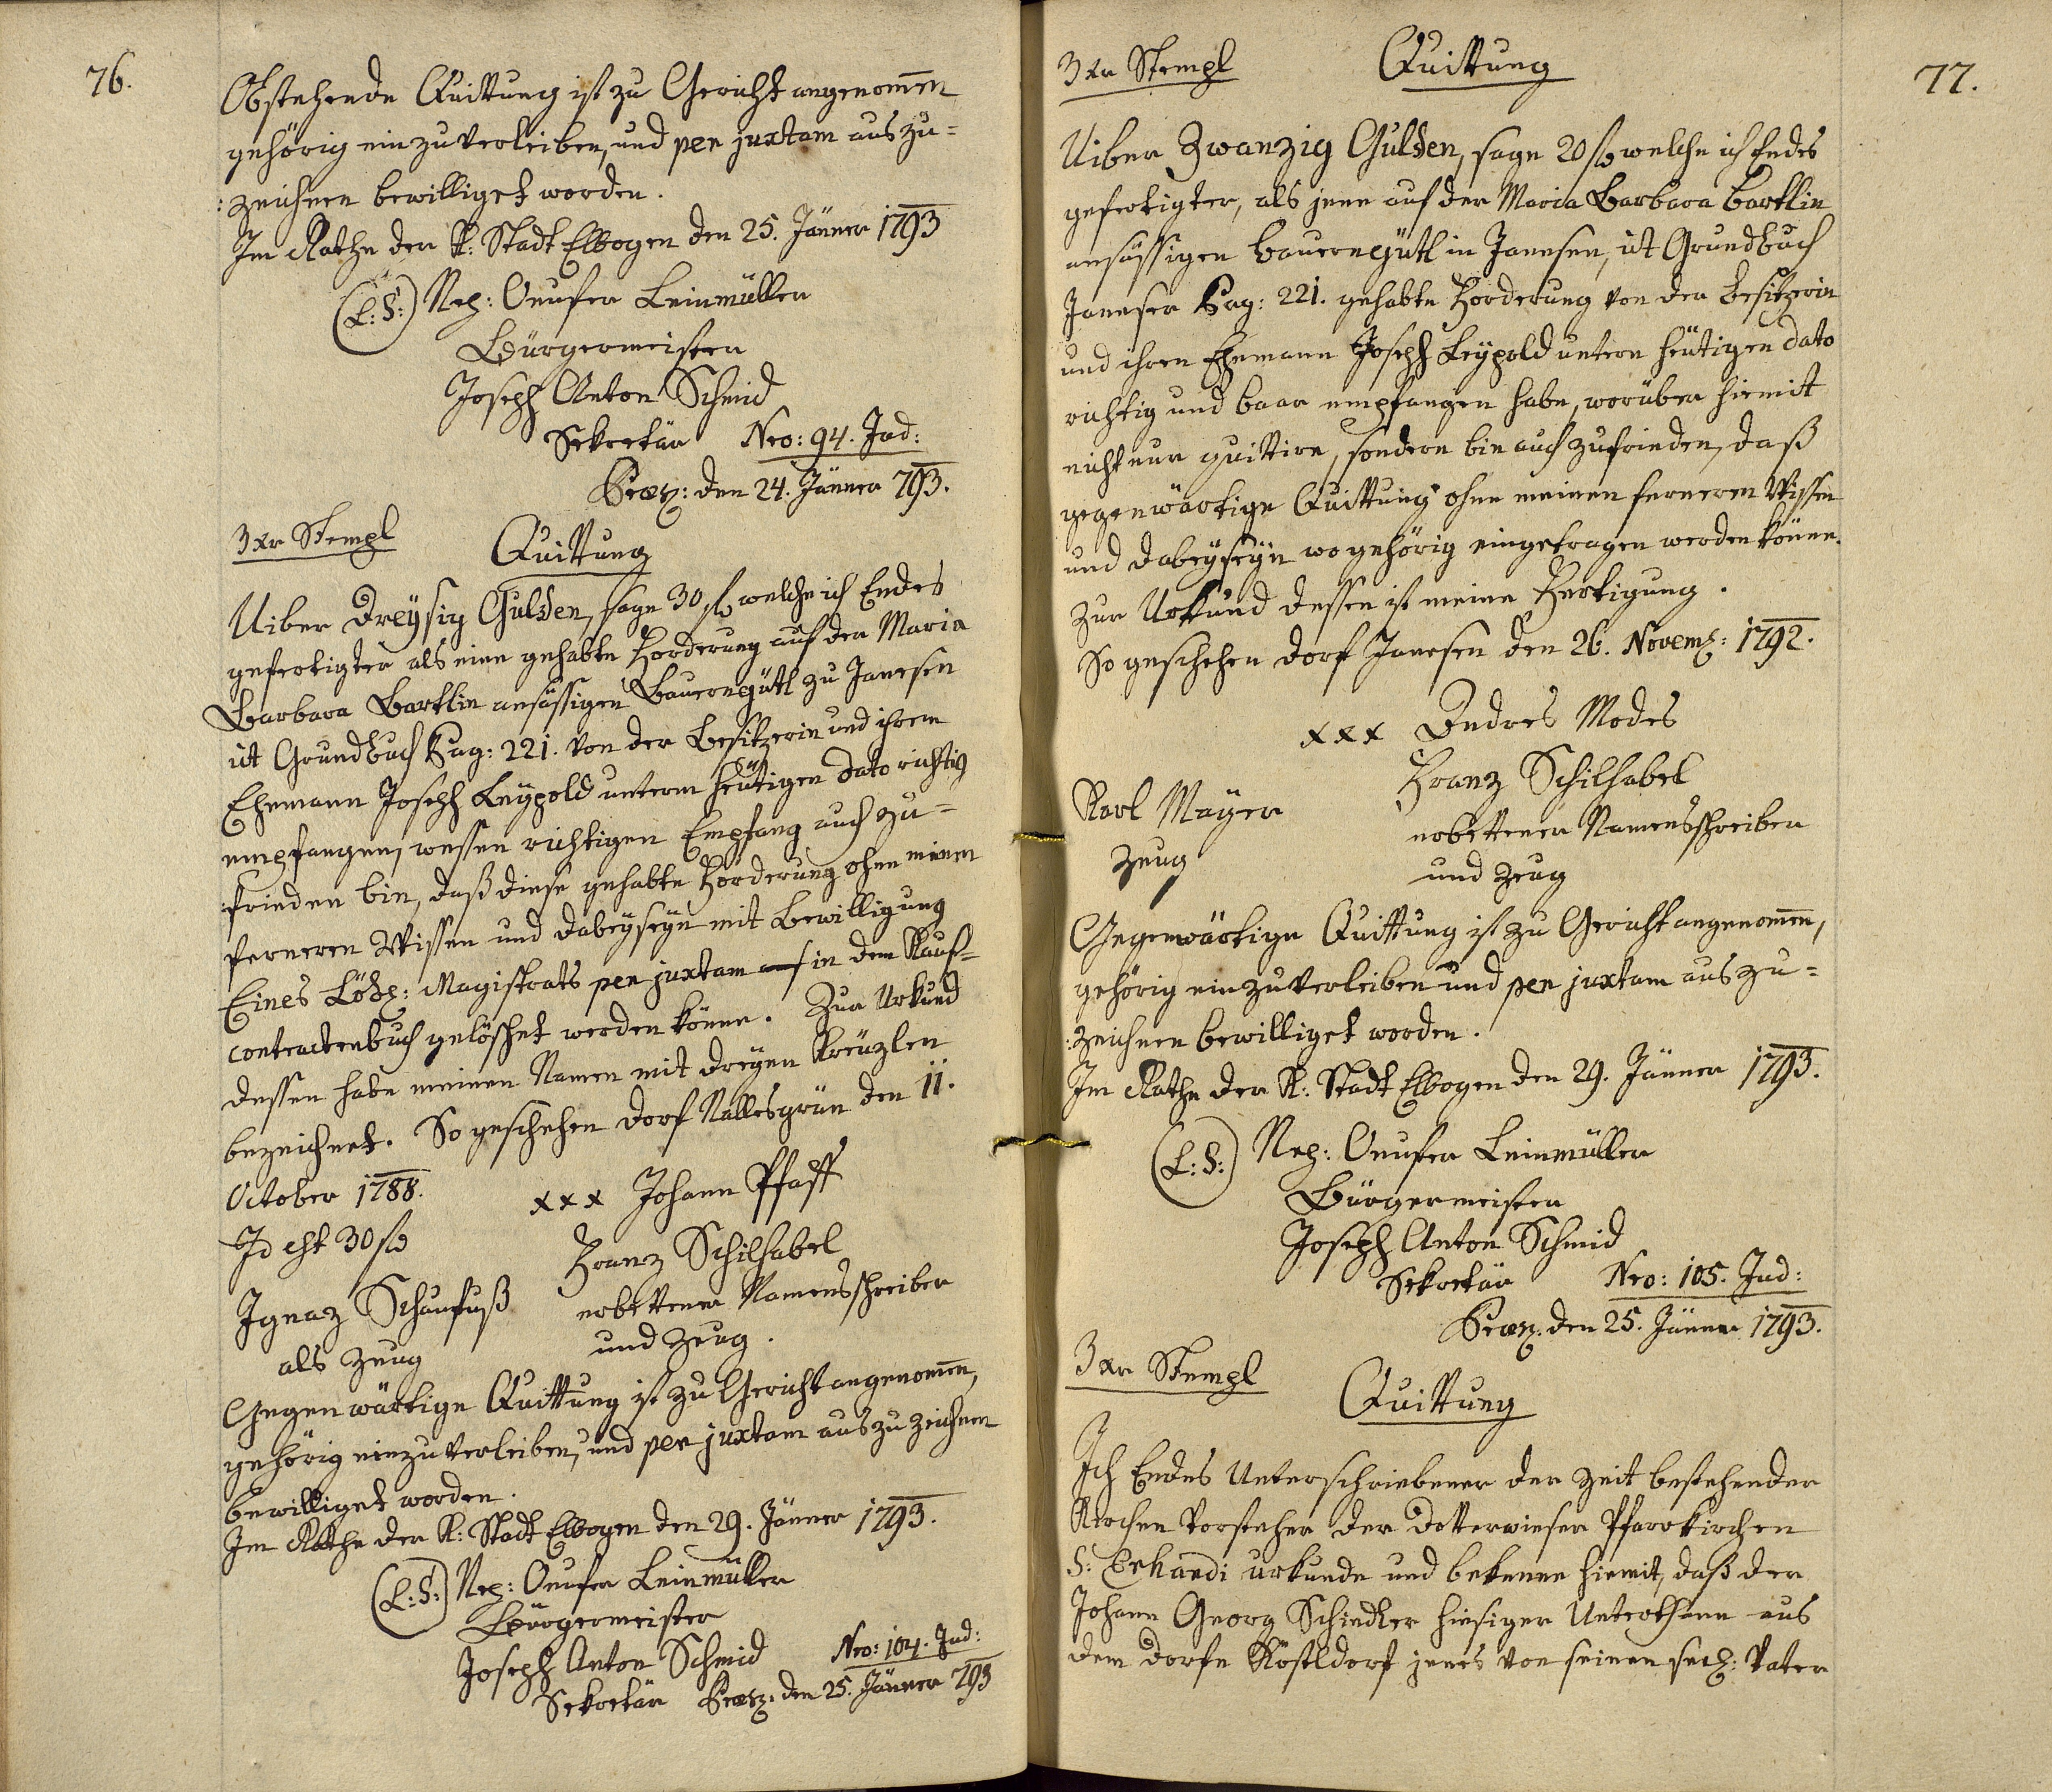 76.
Obstehende Quittung ist zu Gericht angenom̅en
gehörig einzuverleiben, und per juxtam auszu=
:zeichnen bewilliget worden.
Im Rathe der K: Stadt Elbogen den 25. Jänner 1793
(L:S:) Nep: Onufer Leinmüller
Bürgermeister
Joseph Anton Schmid
Sekretär Nro: 94. Jud:
Præs: den 24. Jänner 793.
3xr Stempl
Quittung
Uiber Dreysig Gulden, sage 30 f welche ich Endes
gefertigter als eine gehabte Forderung auf der Maria
Barbara Bartlin ansässigen Bauerngütl zu Janesen
ut Grundbuch Pag: 221. von der Besitzerin und ihrem
Ehemann Joseph Leypold unterm heutigen dato richtig
empfangen, wessen richtigen Empfang auch zu=
:frieden bin, daß diese gehabte Forderung ohne meinem
ferneren Wissen und Dabeyseyn mit Bewilligung
Eines Löbl: Magistrats per juxtam in dem Kauf=
contractenbuch gelöschet werden könne. Zur Urkund
dessen habe meinen Namen mit dreyen Kreuzlen
bezeichnet. So geschehen Dorf Nallesgrün den 11.
October 1788.
xxx Johann Pfaff
Id est 30 f
Franz Schilhabel
Ignaz Schaufuß erbettener Namensschreiber
als Zeug und Zeug.
Gegenwärtige Quittung ist zu Gericht angenom̅en,
gehörig einzuverleiben, und per juxtam auszuzeichnen
bewilliget worden.
Im Rathe der K: Stadt Elbogen den 29. Jänner 1793.
(L:S:) Nep: Onufer Leinmüller
Bürgermeister
Joseph Anton Schmid Nro: 104. Jud:
Sekretär Præs: den 25. Jänner 793
77.
3xr Stempl Quittung
Uiber Zwanzig Gulden, sage 20 f welche ich Endes
gefertigter, als jene auf der Maria Barbara Bartlin
ansässigen Bauerngütl in Janesen, ut Grundbuch
Janeser Pag: 221. gehabte Forderung von der Besitzerin
und ihren Ehemann Joseph Leypold untern heutigen dato
richtig und baar empfangen habe, worüber hiemit
nicht nur quittire, sondern bin auch zufrieden, daß
gegenwärtige Quittung ohne meinen ferneren Wissen
und Dabeyseyn wo gehörig eingetragen werden könne.
Zur Urkund dessen ist meine Fertigung.
So geschehen Dorf Janesen den 26. Novem: 1792.
xxx Andres Modes
Franz Schilhabel
Karl Mayer erbettener Namensschreiber
Zeug und Zeug
Gegenwärtige Quittung ist zu Gericht angenom̅en,
gehörig einzuverleiben und per juxtam auszu=
:zeichnen bewilliget worden.
Im Rathe der K: Stadt Elbogen den 29. Jänner 1793.
(L:S:) Nep: Onufer Leinmüller
Bürgermeister
Joseph Anton Schmid
Sekretär Nro: 105. Jud:
Præs: den 25. Jänner 1793.
3xr Stempl
Quittung
Ich Endes Unterschriebener der Zeit bestehender
Kirchen Vorsteher der Dotterwieser Pfarrkirchen
S: Erhardi urkunde und bekenne hiemit, daß der
Johann Georg Schindler hiesiger Unterthann aus
dem Dorfe Köstldorf jenes von seinen seel: Vater